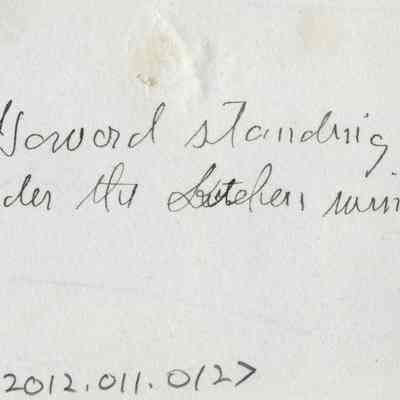 Howard standing
der the kitchen win
2012.011.012>